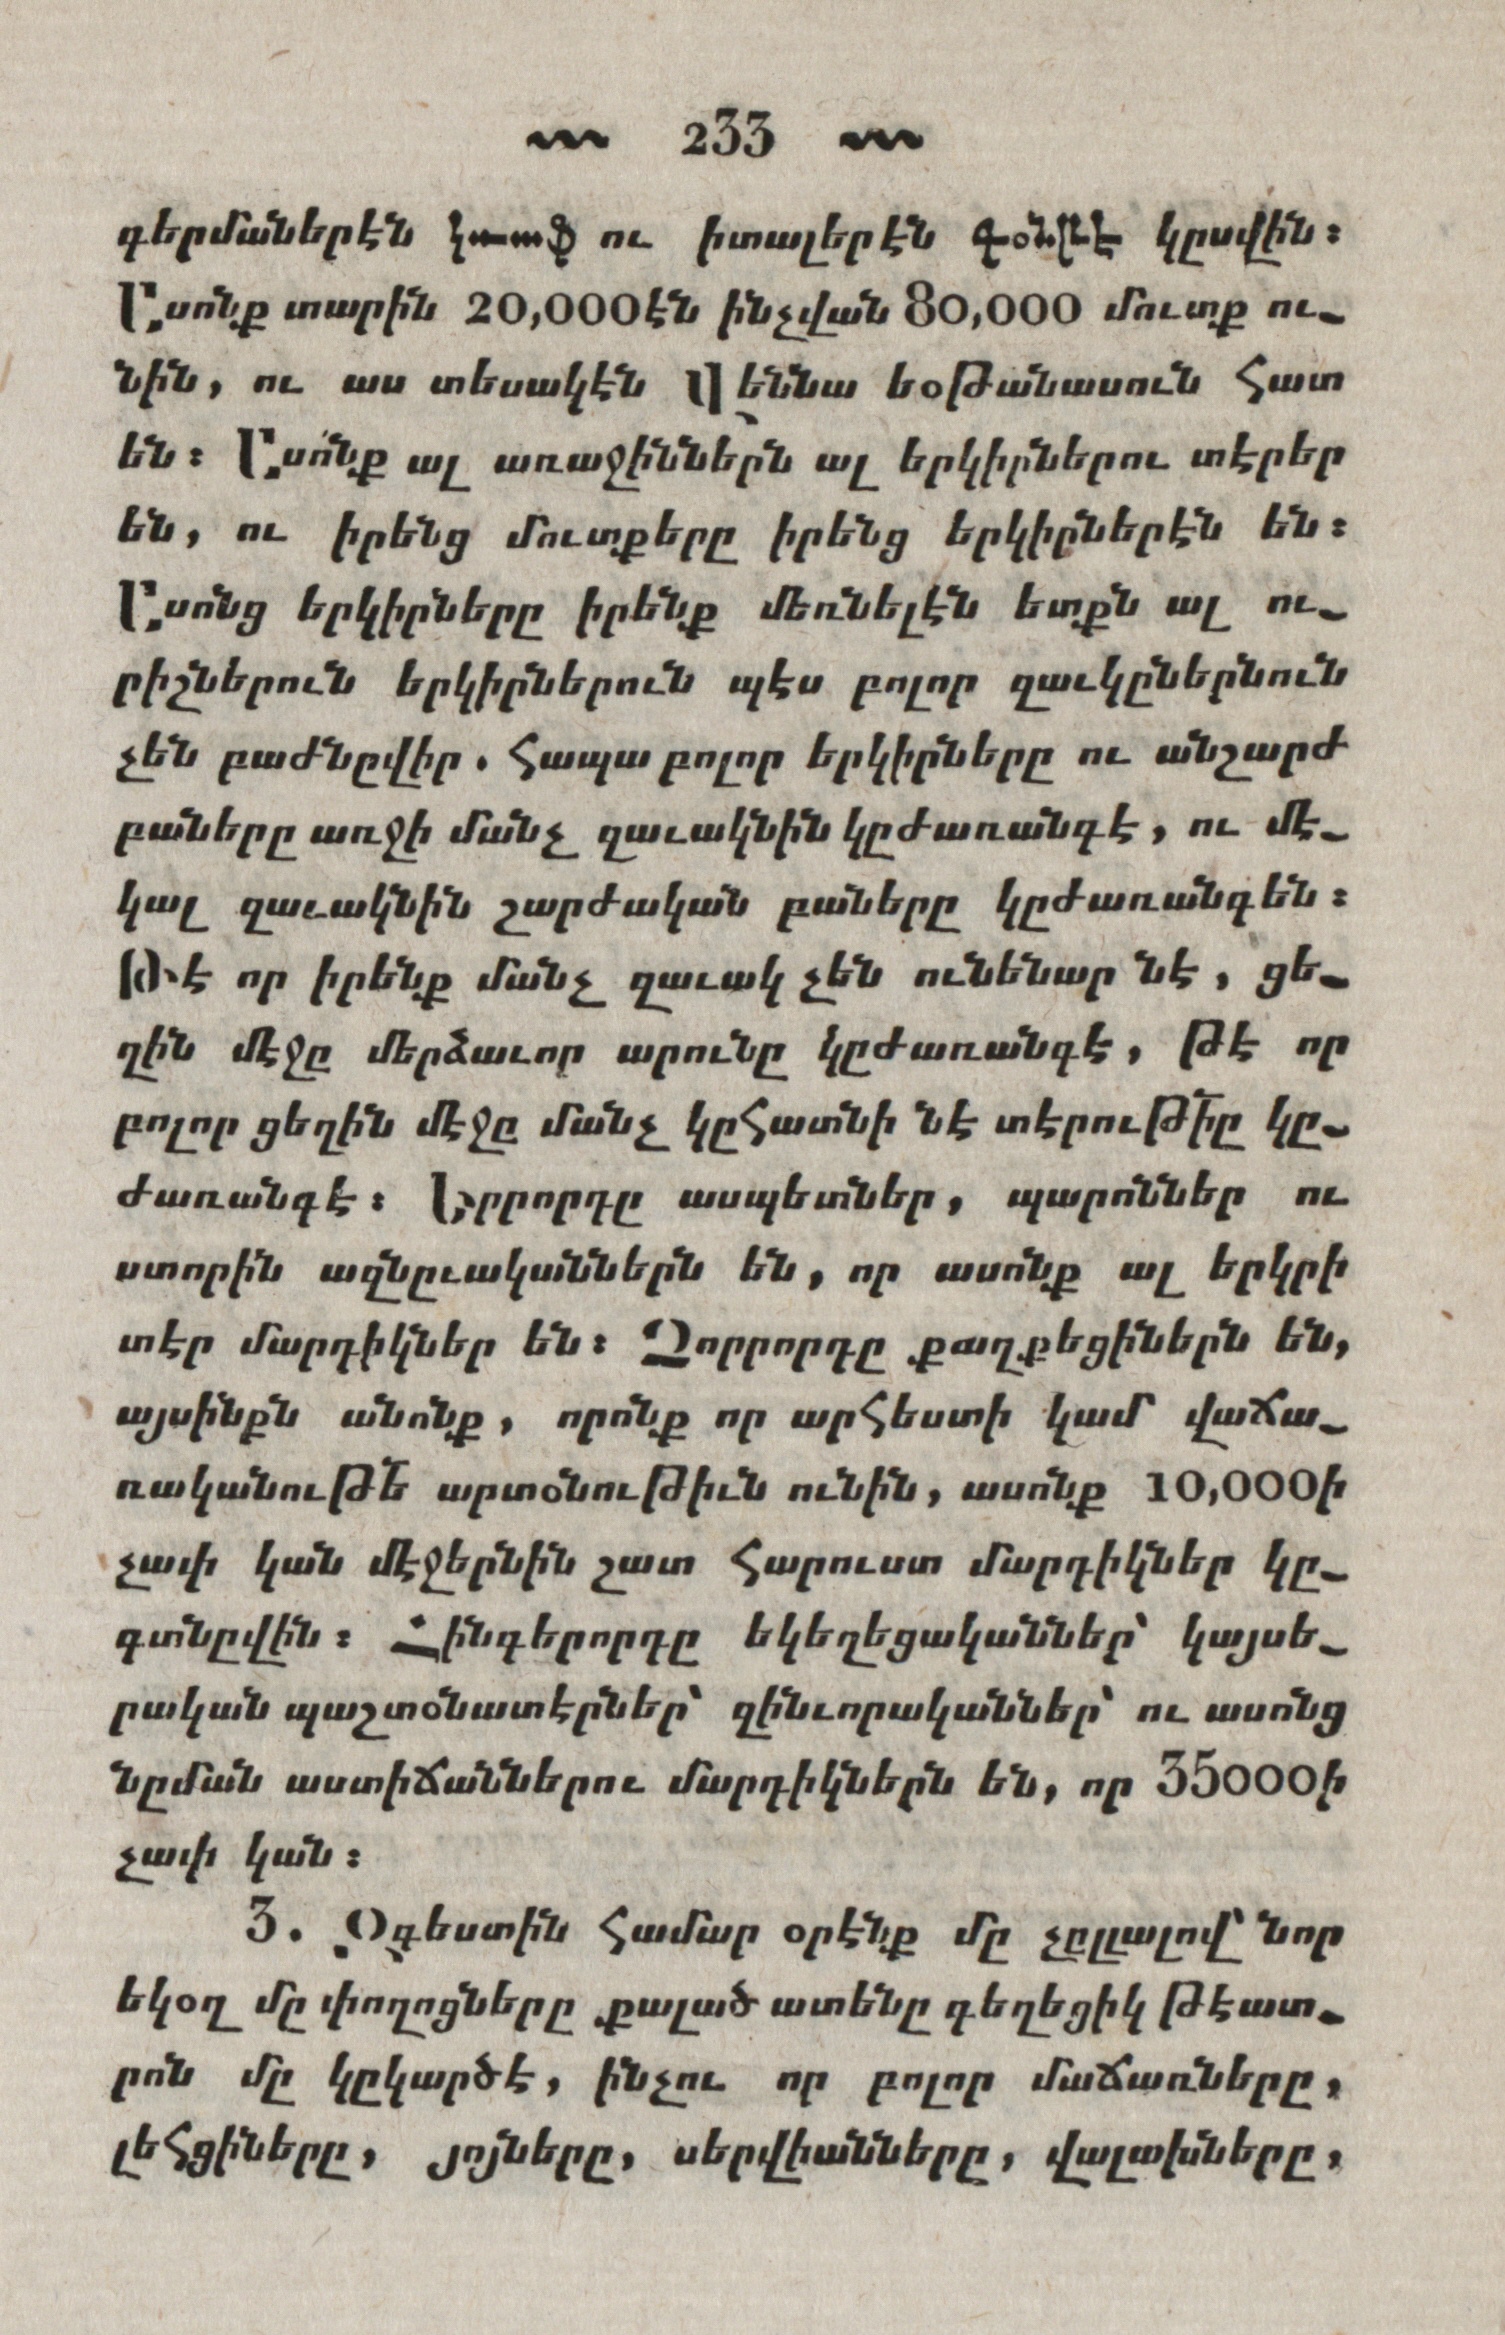 233
գերմաներէն կրաֆ ու իտալերէն գօնթէ կըսվին։
Ասոնք տարին 20,000էն ինչվան 80,000 մուտք ու֊
նին, ու աս տեսակէն Վէննա եօթանասուն հատ
են։ Ասոնք ալ առաջիններն ալ երկիրներու տէրեր
են, ու իրենց մուտքերը իրենց երկիրներէն են։
Ասոնց երկիրները իրենք մեռնելէն ետքն ալ ու֊
րիշներուն երկիրներուն պէս բոլոր զաւկըներնուն
չեն բաժնըվիր. հապա բոլոր երկիրները ու անշարժ
բաները առջի մանչ զաւակնին կըժառանգէ, ու մէ֊
կալ զաւակնին շարժական բաները կըժառանգեն։
Թէ որ իրենք մանչ զաւակ չեն ունենար նէ, ցե֊
ղին մէջը մերձաւոր արունը կըժառանգէ, թէ որ
բոլոր ցեղին մէջը մանչ կըհատնի նէ տէրութիը կը֊
ժառանգէ։ Երրորդը ասպետներ, պարոններ ու
ստորին ազնըւականներն են, որ ասոնք ալ երկրի
տէր մարդիկներ են։ Չորրորդը քաղքեցիներն են,
այսինքն անոնք, որոնք որ արհեստի կամ վաճա֊
ռականութե արտօնութիւն ունին, ասոնք 10,000ի
չափ կան մէջերնին շատ հարուստ մարդիկներ կը֊
գտնըվին։ Հինգերորդը եկեղեցականներ՝ կայսե֊
րական պաշտօնատէրներ՝ զինւորականներ՝ ու ասոնց
նըման աստիճաններու մարդիկներն են, որ 35000ի
չափ կան։
3. Զգեստին համար օրէնք մը չըլլալով՝ նոր
եկօղ մը փողոցները քալած ատենը գեղեցիկ թէատ֊
րոն մը կըկարծէ, ինչու որ բոլոր մաճառները,
լեհցիները, յոյները, սերվիանները, վալախները,